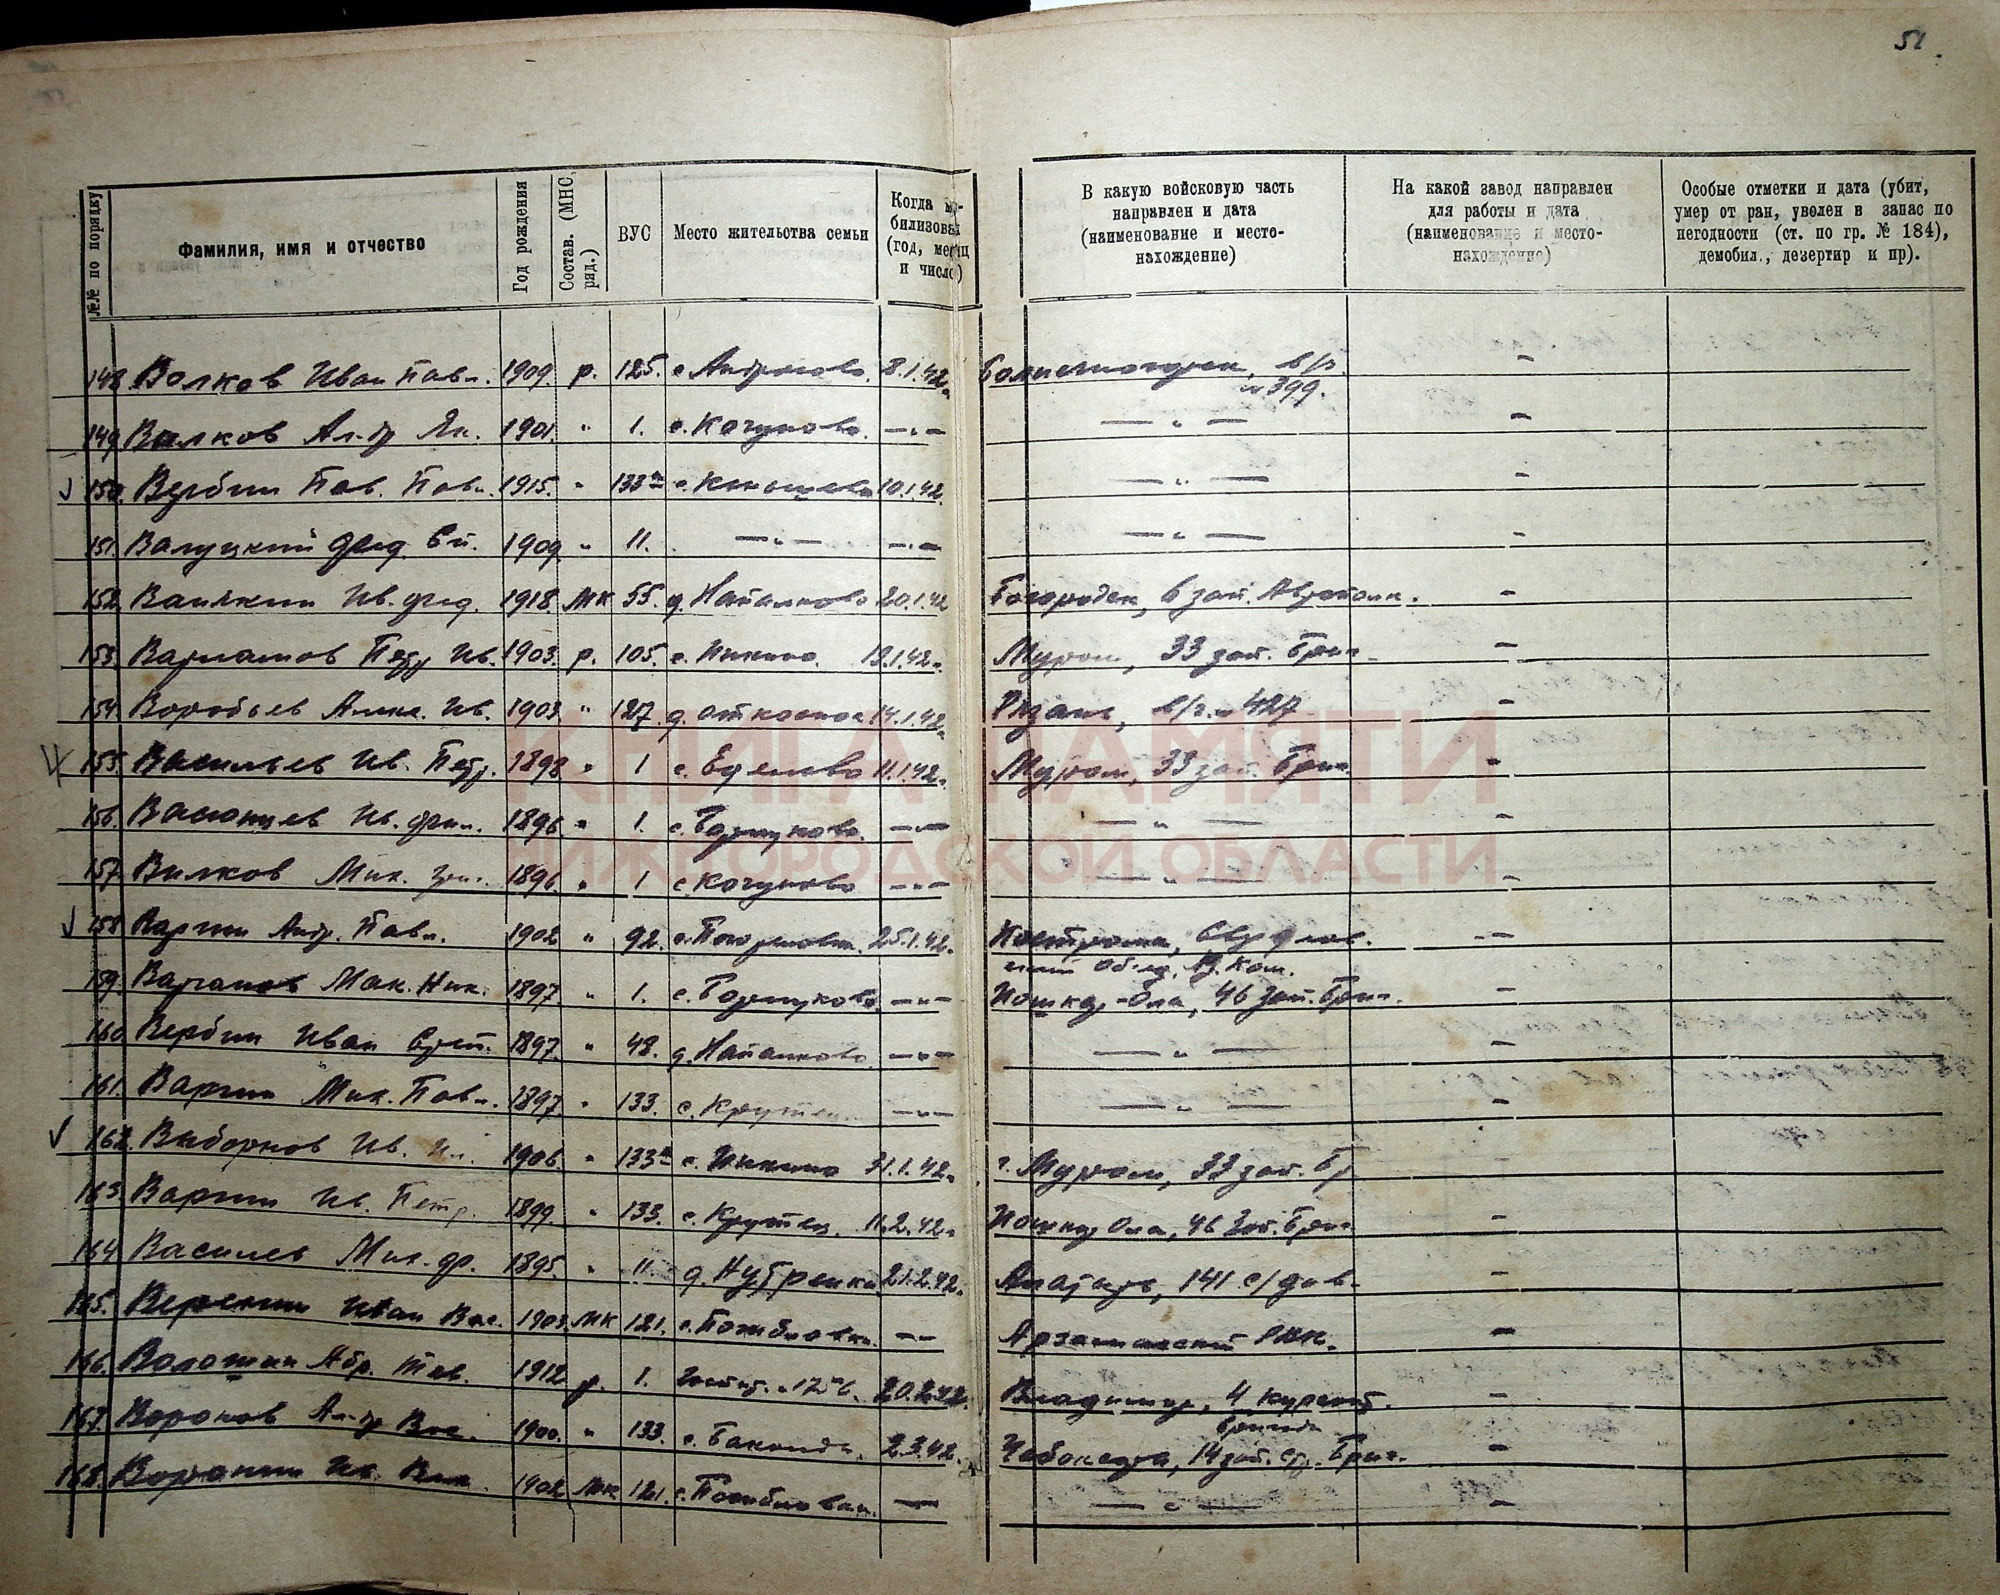 51
№№ по порядку
Фамилия, имя и отчество
Год рождения
Состав. (МНС, ряд.)
ВУС
Место жительства семьи
Когда мо-
билизован
(год, месяц
и число)
В какую войсковую часть
направлен и дата
(наименование и место-
нахождение)
На какой завод направлен
для работы и дата
(наименование и место-
нахождение)
Особые отметки и дата (убит,
умер от ран, уволен в запас по
негодности (ст. по гр. № 184),
демобил., дезертир и пр).
148. Волков Иван Павл. 1909. р. 125. 8.1.42г. в/ч. –
№ 399.
149. Волков Ал-др Як. 1901. " 1. с. Кочуново. –"– –"– –
150. Вербин Пав. Павл. 1915. " 133 10.1.42. –"– –
151. Валуцкий Фед. 1909. " 11. –"– –"– –"– –
152. Ваилкин Ив. Фед. 1918 МК 55. д. Напалково 20.1.42 Богородск, 6 зап. Автополк. –
153. Варламов Петр Ив. 1903. р. 105. с. Инкино. 19.1.42г. Муром, 33 зап. Бриг. –
154. Воробьев Ив. 1903. " 127. 14.1.42г. Рязань, в/ч. № 427 –
155. Васильев Ив. Петр. 1898 " 1 с. Еделево 11.1.42г. Муром, 33 зап. Бриг. –
156. Ив. 1896. " 1. –"– –"– –
157. Вилков Мих. Григ. 1896. " 1 с. Кочуново –"– –"– –
158. Варгин Андр. Павл. 1902 " 92. 25.1.42г. Кострома, Свердлов. –
Обл. В. Ком.
159. Варганов Мак. Ник. 1897. " 1. –"– Йошкар-Ола, 46 зап. Бриг. –
160. Вербин Иван 1897. " 48. д. Напалково –"– –"– –
161. Варгин Мих. Павл. 1897. " 133. с. Крутец. –"– –"– –
162. Выборнов Ив. Ил. 1906. " 133 с. Инкино 31.1.42г. г. Муром, 33 зап. Бр
163. Варгин Ив. Петр. 1899. " 133. с. Крутец. 11.2.42г. Йошкар Ола, 46 Зап. Бриг. –
164. Васильев Мих. Фр. 1895. " 11. 21.2.42г. Алатырь, 141 с/див. –
165. Иван Вас. 1903. МК 121. с. Погибловка. –"– Арзамасский РВК. –
166. Волошин Абр. 1912. р. 1. 20.2.42г. Владимир, 4 –
бригада
167. Воронов Ал-др Вас. 1900. " 133. с. Бакалда. 2.3.42. Чебоксары, 14 зап. стр. Бриг. –
168. Ив. 1902 МК 121. с. Погибловка. –"– –"– –
КНИГА ПАМЯТИ
НИЖЕГОРОДСКОЙ ОБЛАСТИ